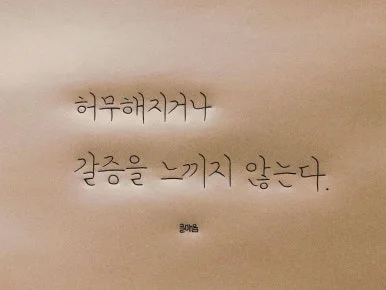 허무해지거나
갈증을 느끼지 않는다.